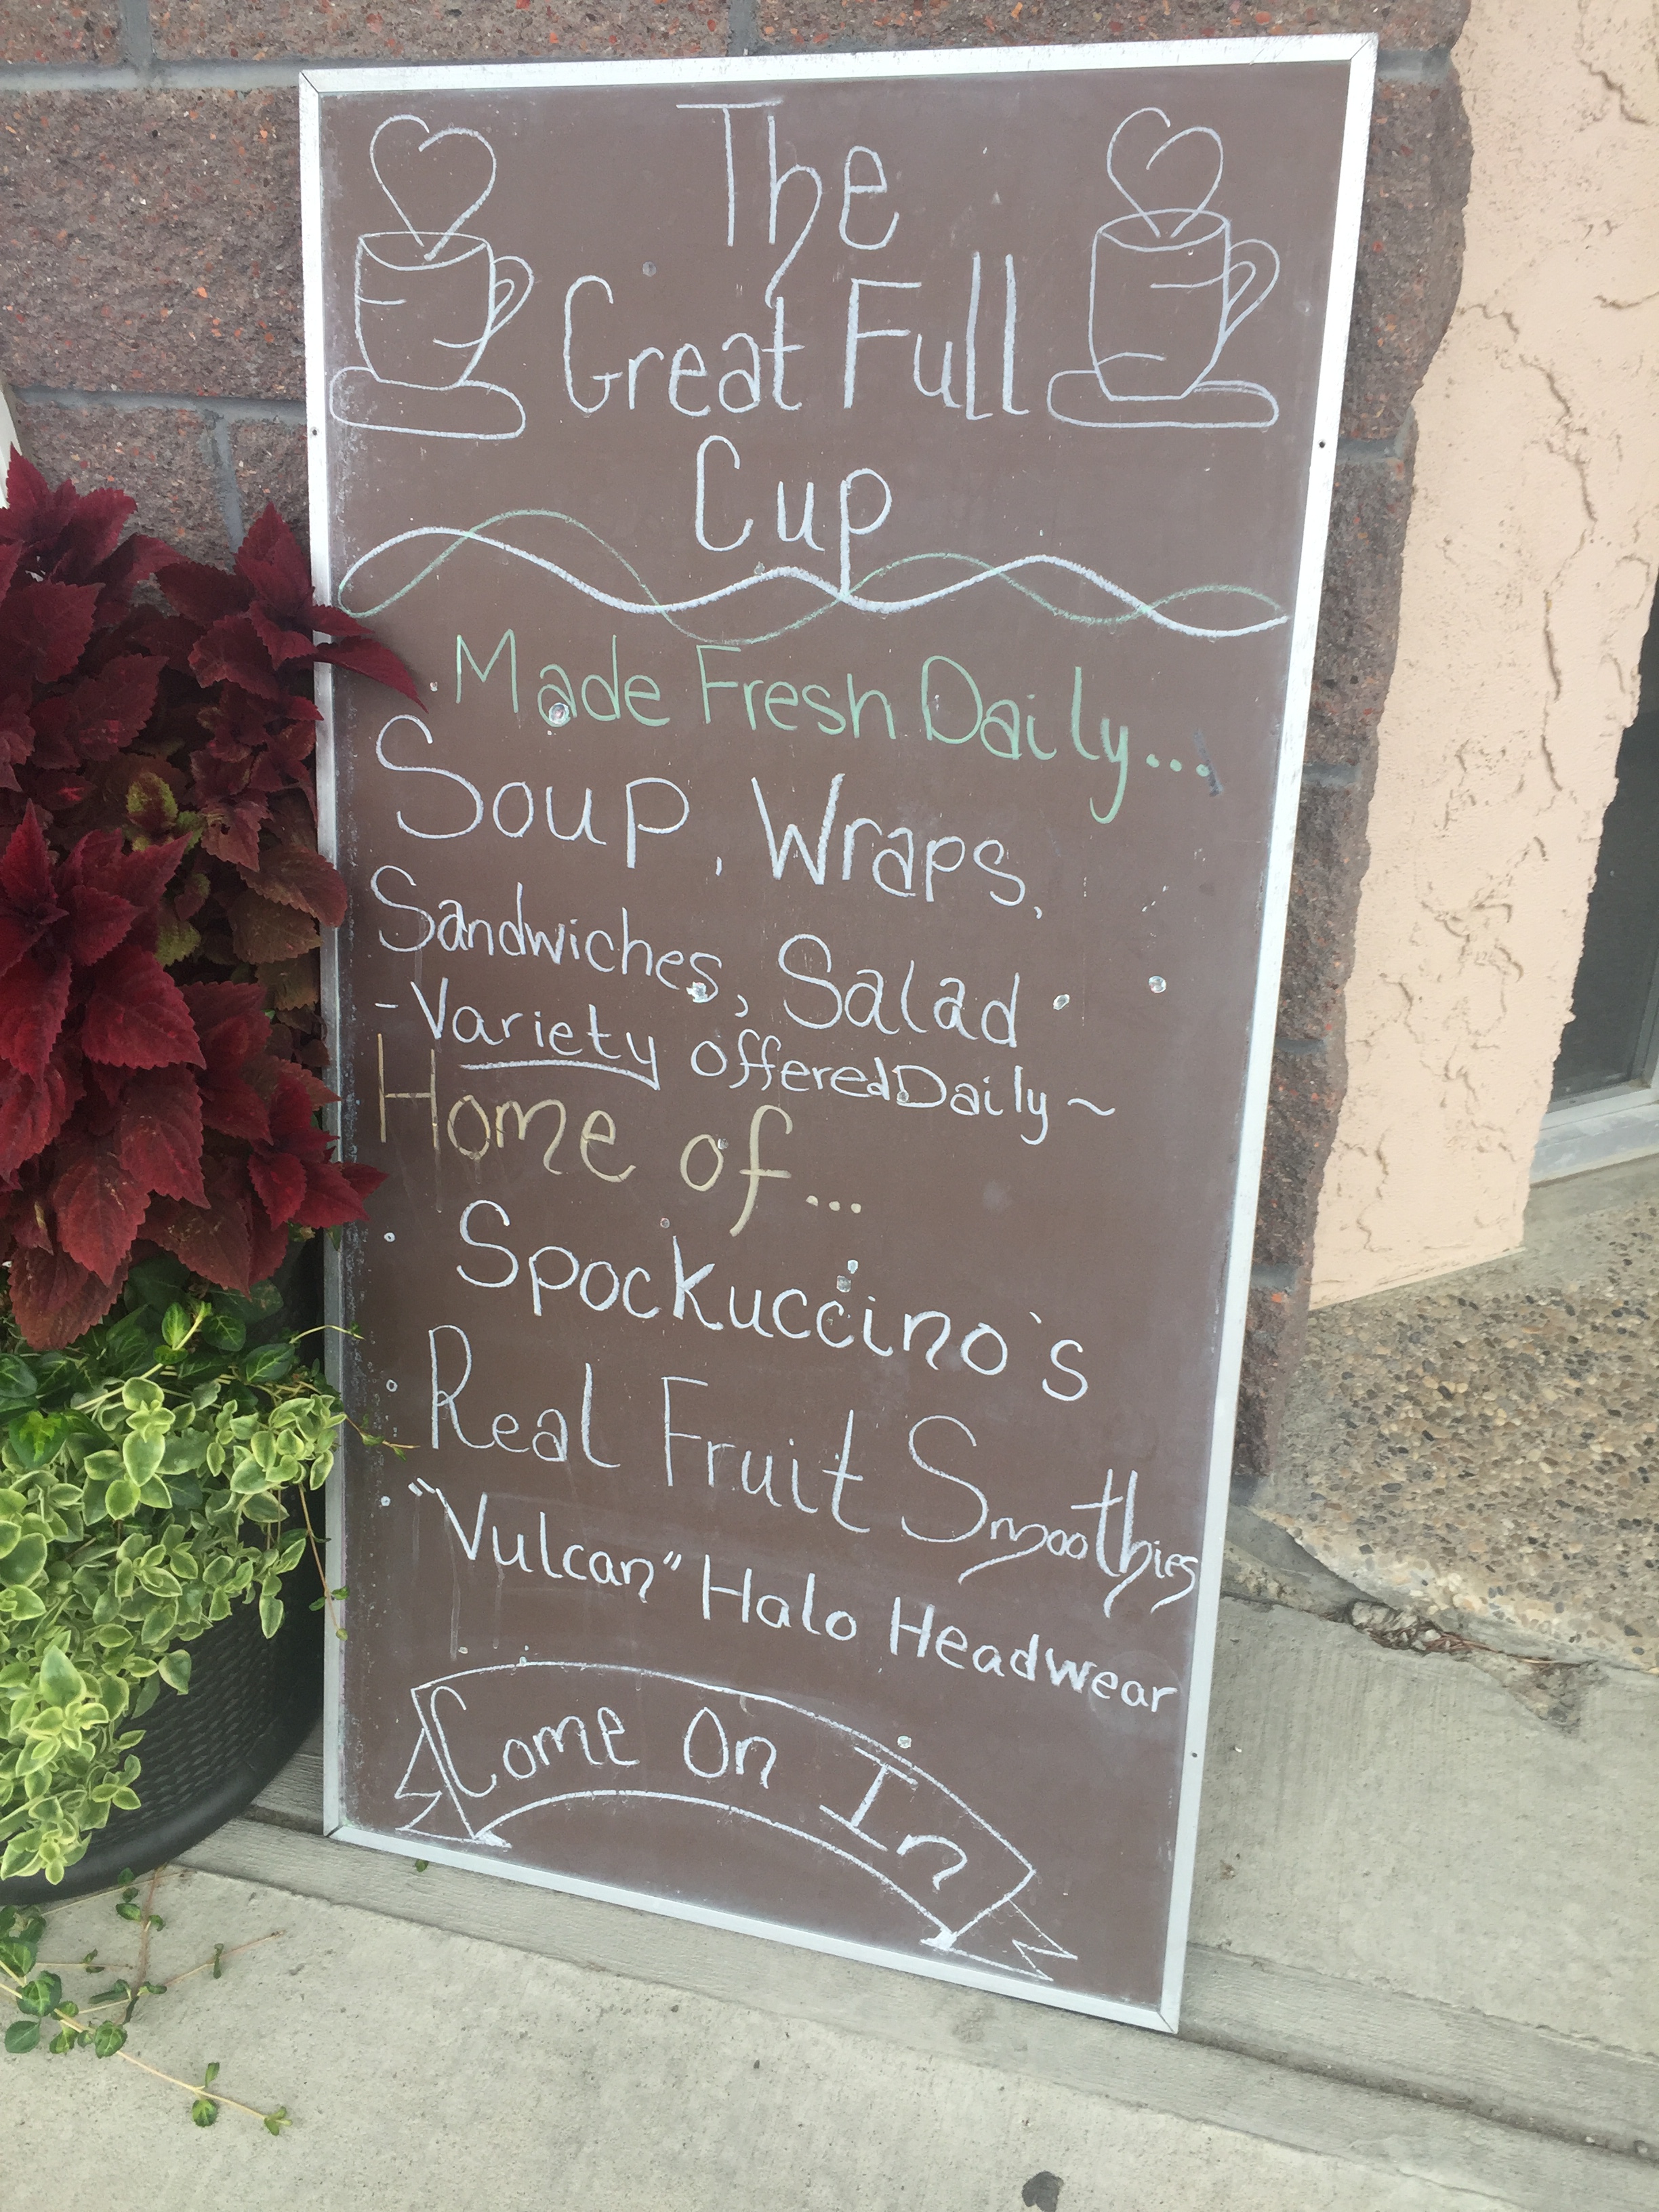 The
Great Full
Cup
Made Fresh Daily...
Soup, Wraps,
Sandwiches, Salad
- Variety offered Daily ~
Home of...
• Spockuccino's
• Real Fruit Smoothies
• "Vulcan" Halo Headwear
Come On In